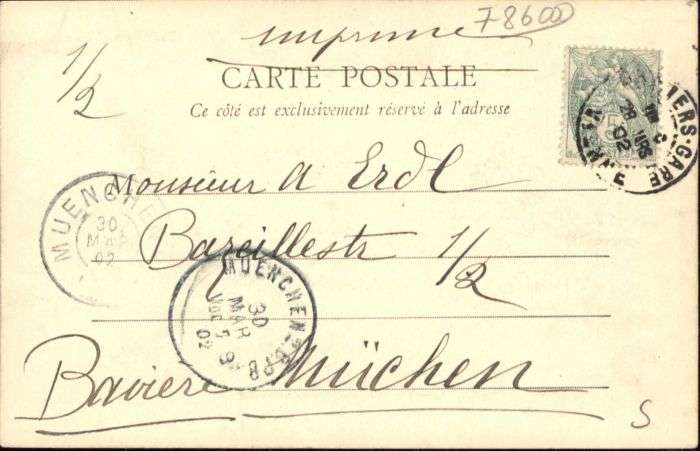 78600
imprimé
1/2
CARTE POSTALE
Ce côté est exclusivement réservé à l'adresse
5
IERS-GARE
28 MRS 02
Monsieur A Erdl
MUENCHE
30 MAR 02
Bazeillestr 1/2
MUENCHEN
30 MAR 02
Bavière Müchen
S